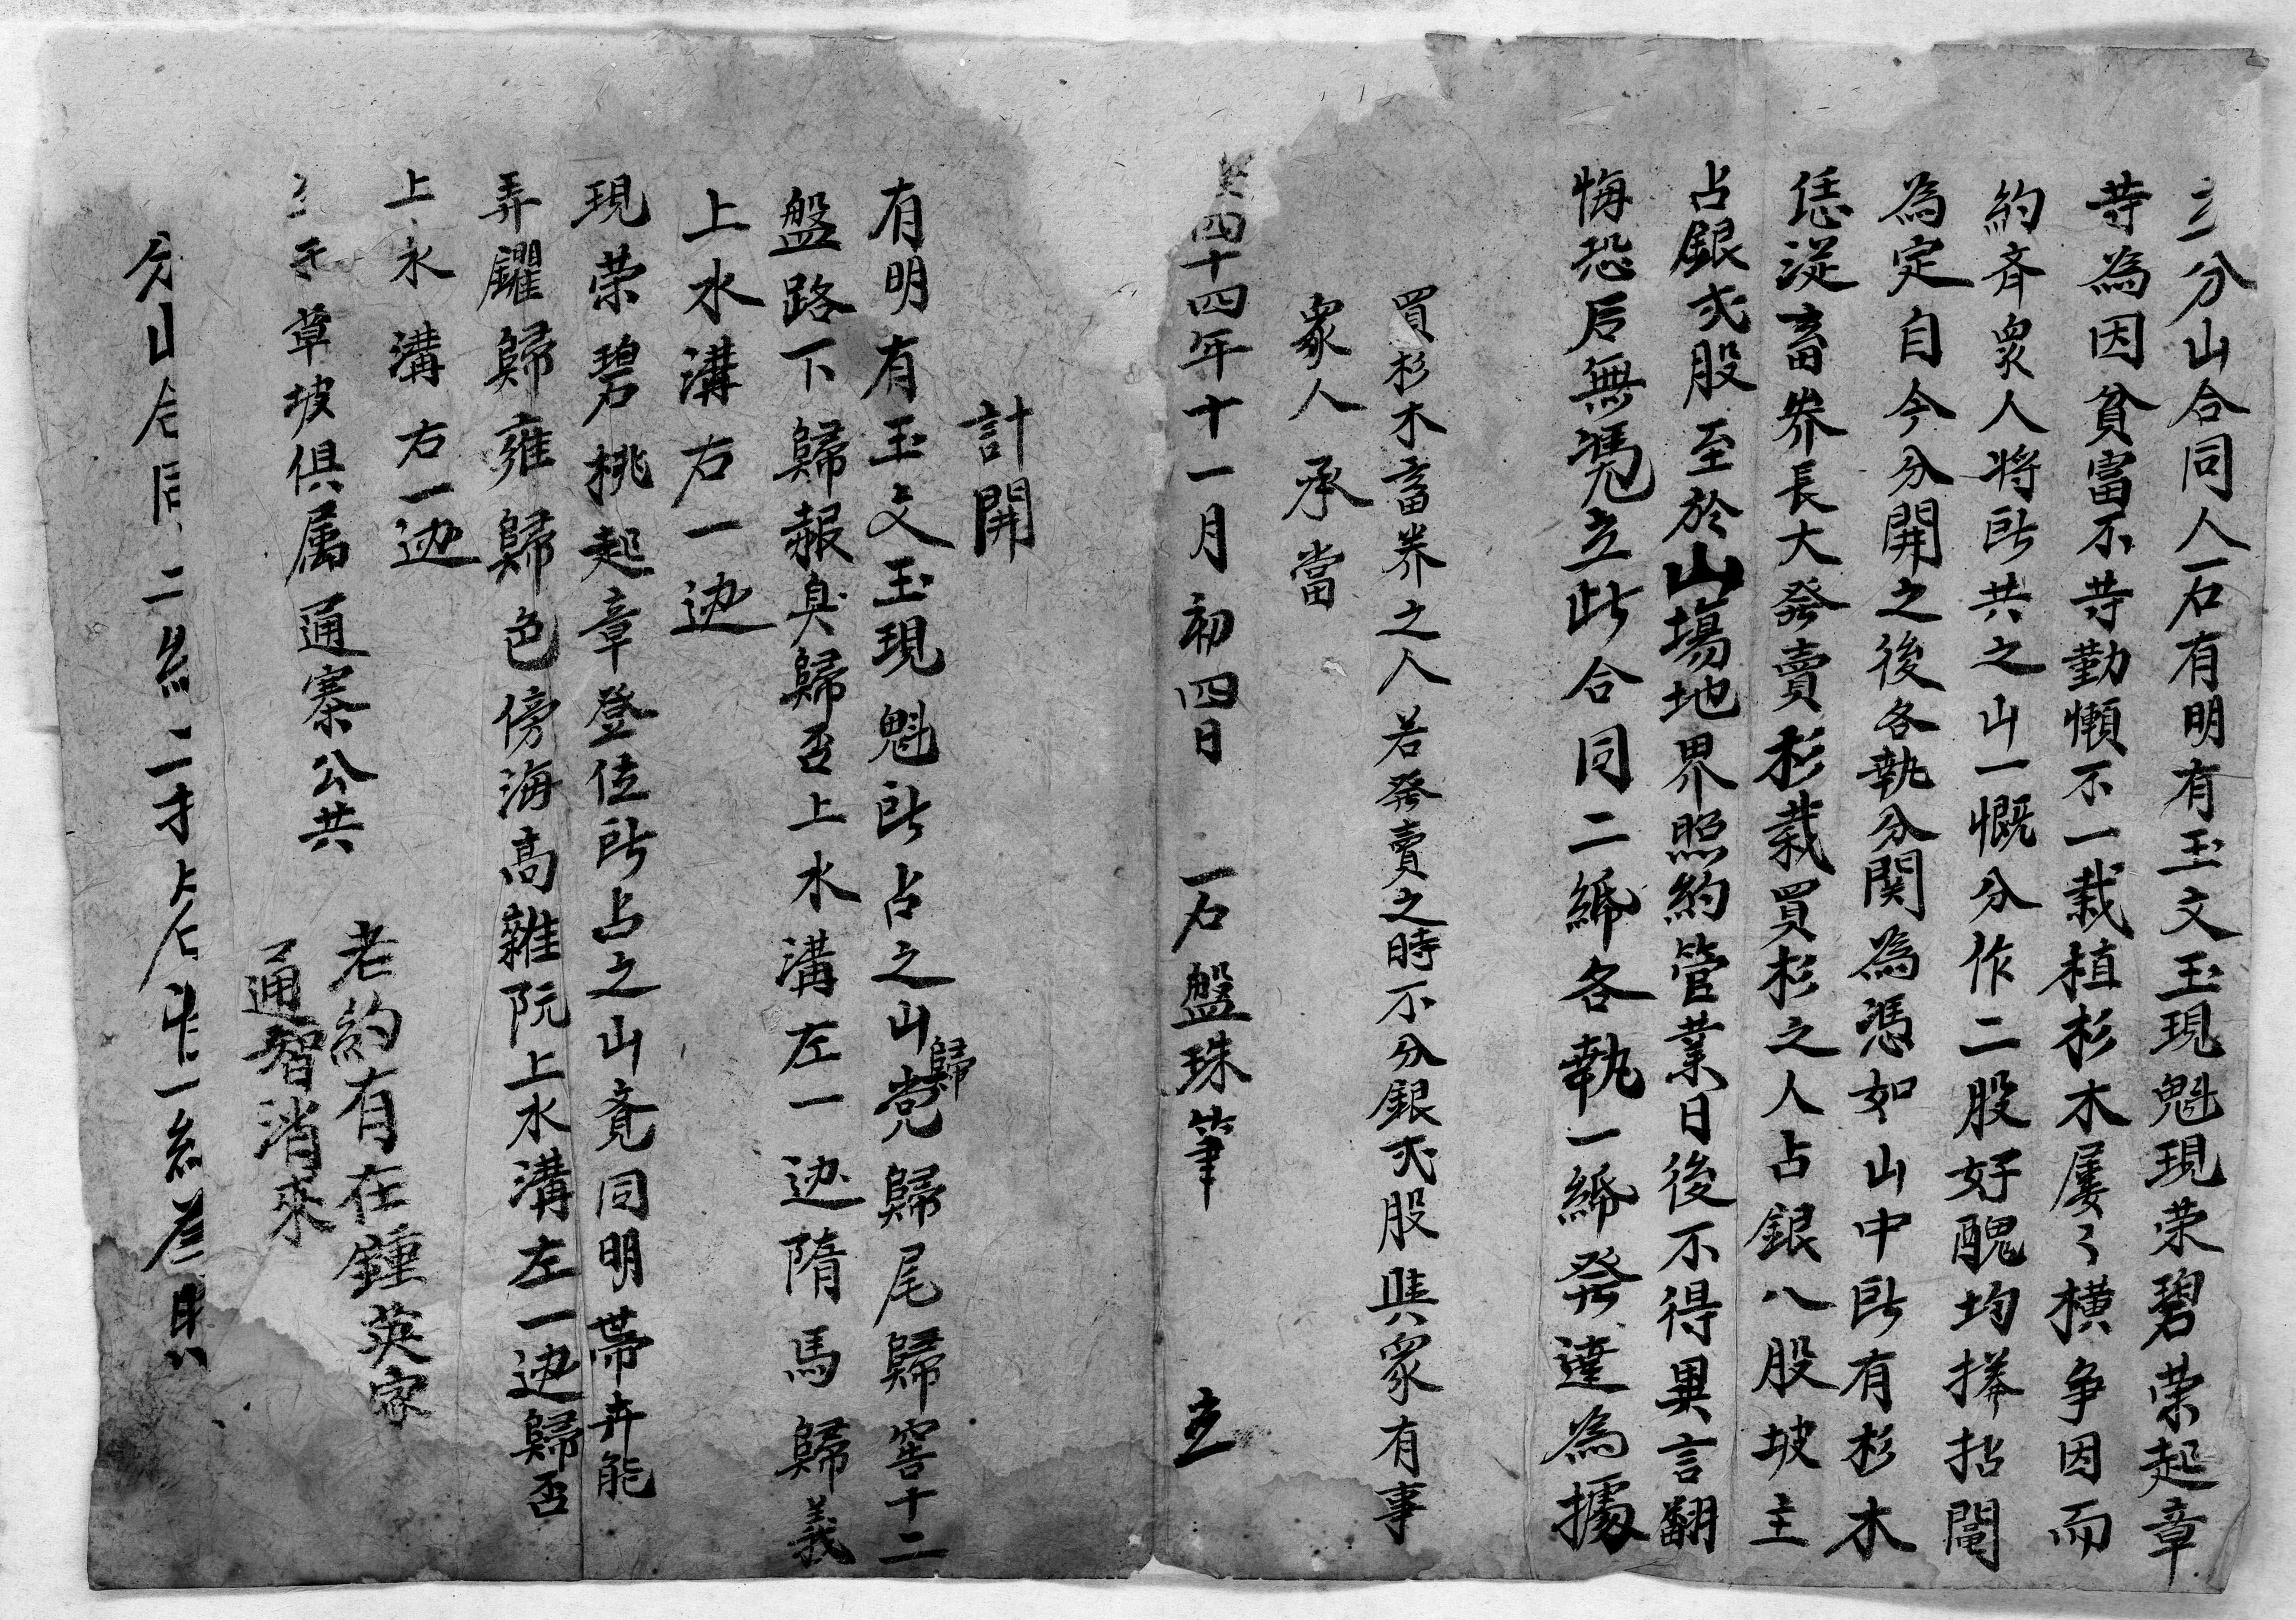 立分山合同人一石有明有玉文玉現魁現荣碧荣起章
䓁為因貧富不䓁勤懶不一栽植杉木屡々横争因而
約斉衆人将所共之山一慨分作二股好醜均搽拈鬮
為定自今分開之後各執分関為憑如山中所有杉木
恁從畜养長大發賣杉栽買杉之人占銀八股坡主
占銀弍股至於山塲地界照約管業日後不得異言翻
悔恐后無凴立此合同二紙各執一紙發達為據
買杉木畜养之人若發賣之時不分銀弍股與衆有事
衆人承當
四十四年十一月初四日 一石盤珠筆 立
計開
有明有玉文玉現魁所占之山歸党歸尾歸窖十二
盤路下歸赧臭歸否上水溝左一边隋馬歸義
上水溝右一边
現荣碧桃起章登位所占之山竟同明帶卉能
弄鑺歸雍歸色傍海高雜阮上水溝左一边歸否
上水溝右一边
草坡俱属通寨公共
老約有在鍾英家
通智消來
分山合同二紙二才占